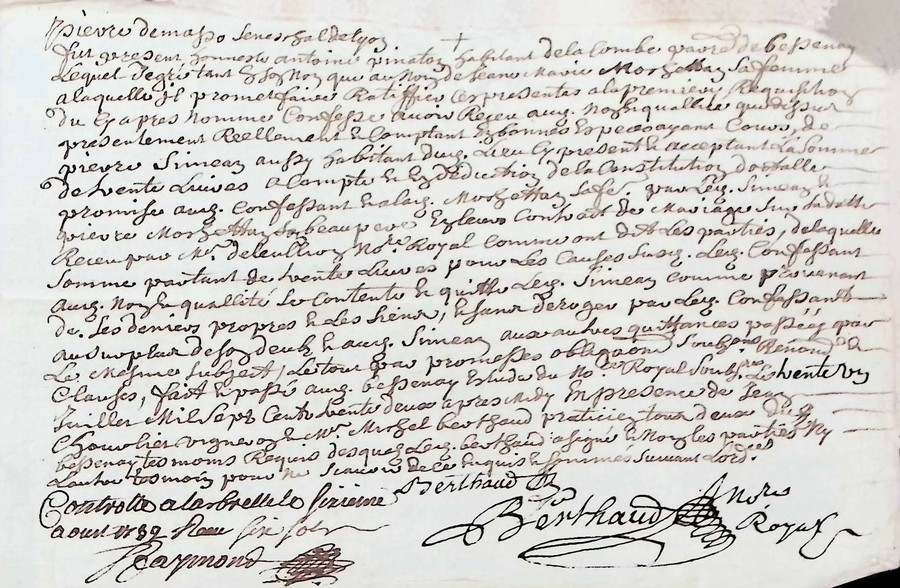 pierre demasso Seneschal de lyon
fut present honneste antoine pinaton habitant de la Combe parr. de bessenay
Lequel de gré tant En Son Nom que au Nom de Jeanne Marie Morzettan Sa femme
a laquelle il promet faire Ratiffier Ces presentes a la premiere Requisition
du Cy apres Nommé Confesse avoir Reçeu aud. Nom Enquallité que dessus
presentement Reellement & Comptant En bonnes Especes ayant Cours, de
pierre Simean aussy habitant dud. Lieu Cy present & acceptant La Somme
de trente Livres a Compte & En deduction de la Constitution dotalle
promise aud. Confessant & a lad. Morzettan Sa fe. par Led. Simean &
pierre Morzettan Sa beau pere En leur Contract de Mariage Sur Sa datte
Reçeu par Mr. Nore. Royal Comme ont dit Les parties, de laquelle
Somme partant de trente Livres pour Les Causes Susd. Led. Confessant
aud. Nom & quallité Se Contente & quitte Led. Simean Comme provenant
de Ses deniers propres & Les Siens, & Sans deroger par Led. Confessant
au Surplus de Son deub & aud. Simean aux autres quittances passées pour
Le Mesme Subject, Le tout par promesses obligaons Soubzons Renonons &
Clauses, fait & passé aud. bessenay Estude du Nore Royal Soubsné. Le trente un
Juillet Mil Sept Cent trente deux apres Midy En presence de Jean
Chavelier vigneron & Mr. Michel berthaud praticien tous deux dud.
bessenay tesmoins Requis desquels Led. berthaud a Signé & Non les parties Ny
L'autre tesmoin pour Ne Scavoir de Ce Enquis & Sommés Suivant Lordce
Controllé a larbrelle le Sixieme Berthaud
aout 1732 Reçu Six Sols Berthaud Nore Royal
Raymond